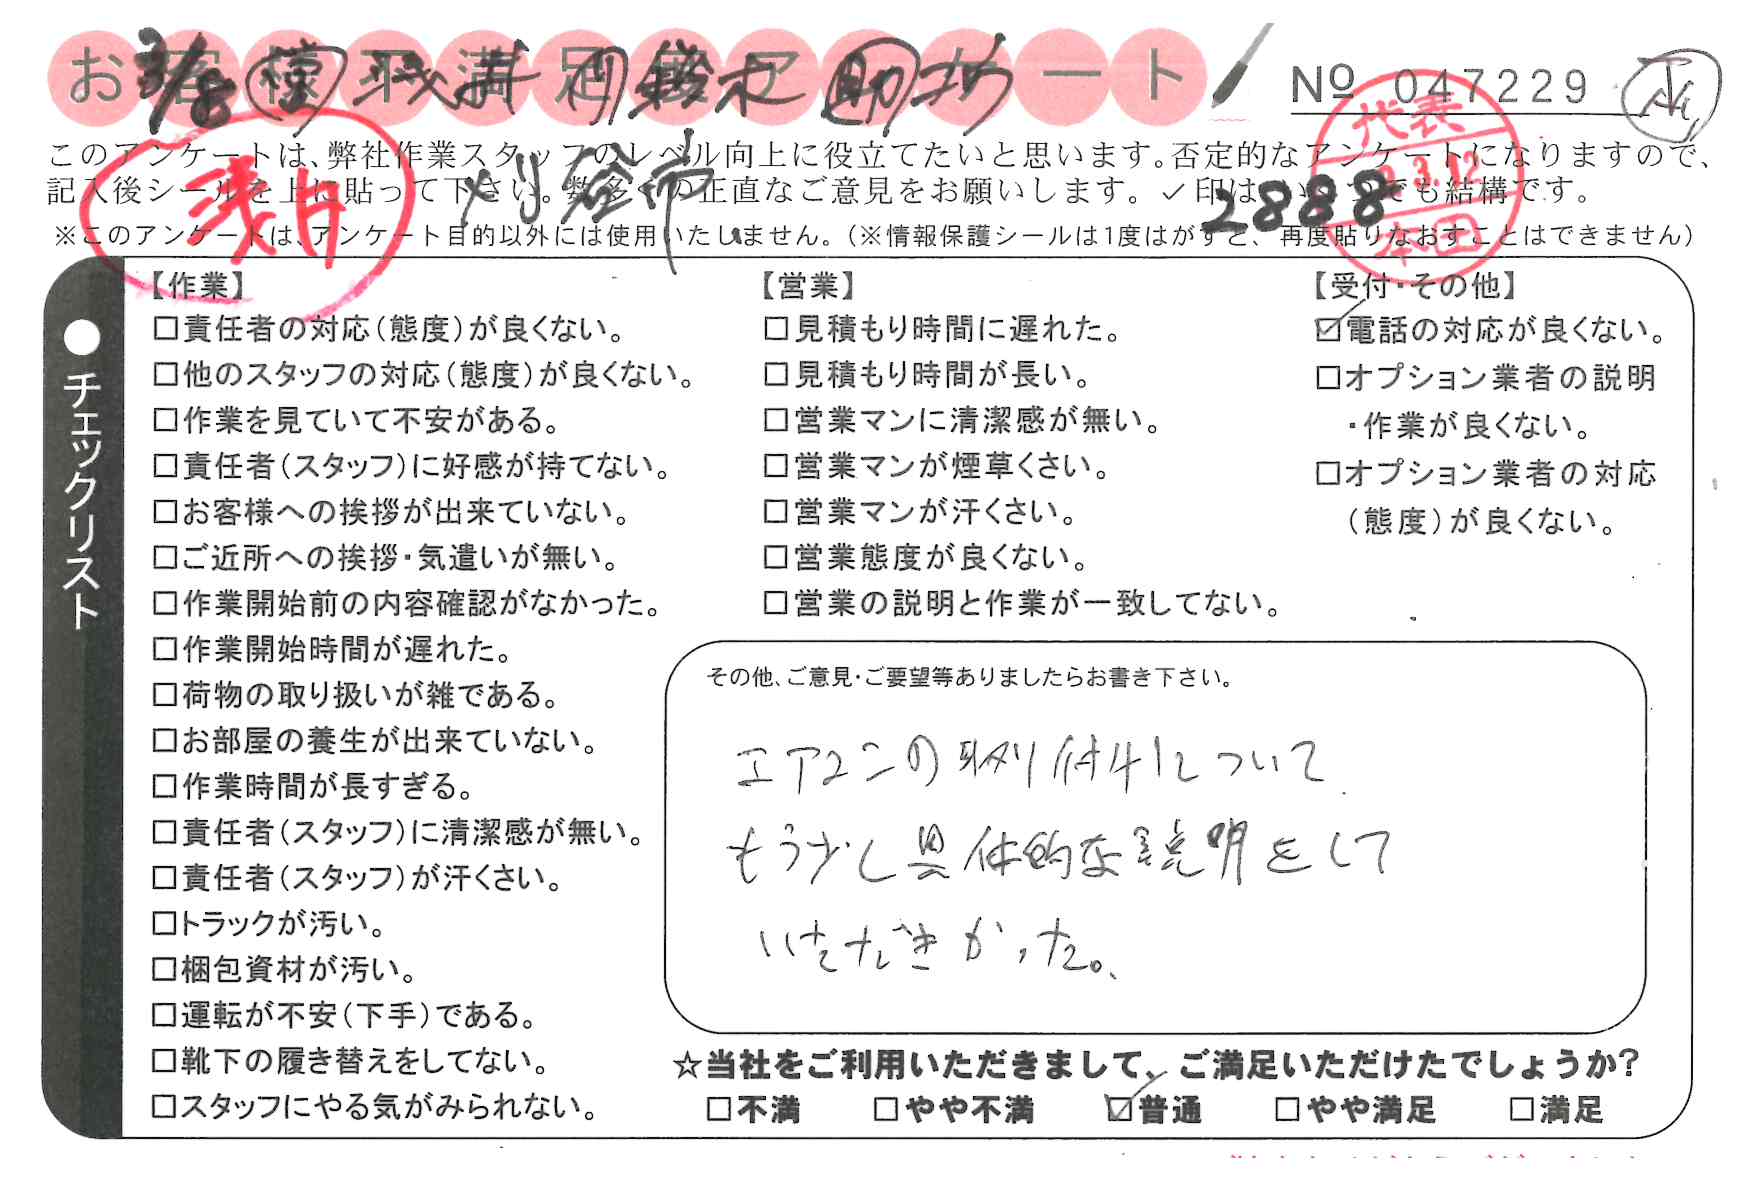 お客様不満足度アンケート
3/8 鈴木 助
No 047229
このアンケートは、弊社作業スタッフのレベル向上に役立てたいと思います。否定的なアンケートになりますので、
記入後シールを上に貼って下さい。数多くの正直なご意見をお願いします。✓印はいくつでも結構です。
※このアンケートは、アンケート目的以外には使用いたしません。(※情報保護シールは1度はがすと、再度貼りなおすことはできません)
刈谷市
2888
代表
3.12
本田
●チェックリスト
【作業】
□責任者の対応(態度)が良くない。
□他のスタッフの対応(態度)が良くない。
□作業を見ていて不安がある。
□責任者(スタッフ)に好感が持てない。
□お客様への挨拶が出来ていない。
□ご近所への挨拶・気遣いが無い。
□作業開始前の内容確認がなかった。
□作業開始時間が遅れた。
□荷物の取り扱いが雑である。
□お部屋の養生が出来ていない。
□作業時間が長すぎる。
□責任者(スタッフ)に清潔感が無い。
□責任者(スタッフ)が汗くさい。
□トラックが汚い。
□梱包資材が汚い。
□運転が不安(下手)である。
□靴下の履き替えをしてない。
□スタッフにやる気がみられない。
【営業】
□見積もり時間に遅れた。
□見積もり時間が長い。
□営業マンに清潔感が無い。
□営業マンが煙草くさい。
□営業マンが汗くさい。
□営業態度が良くない。
□営業の説明と作業が一致してない。
【受付・その他】
☑電話の対応が良くない。
□オプション業者の説明
・作業が良くない。
□オプション業者の対応
(態度)が良くない。
その他、ご意見・ご要望等ありましたらお書き下さい。
エアコンの取り付けについて
もう少し具体的な説明をして
いただきかった。
☆当社をご利用いただきまして、ご満足いただけたでしょうか?
□不満 □やや不満 ☑普通 □やや満足 □満足